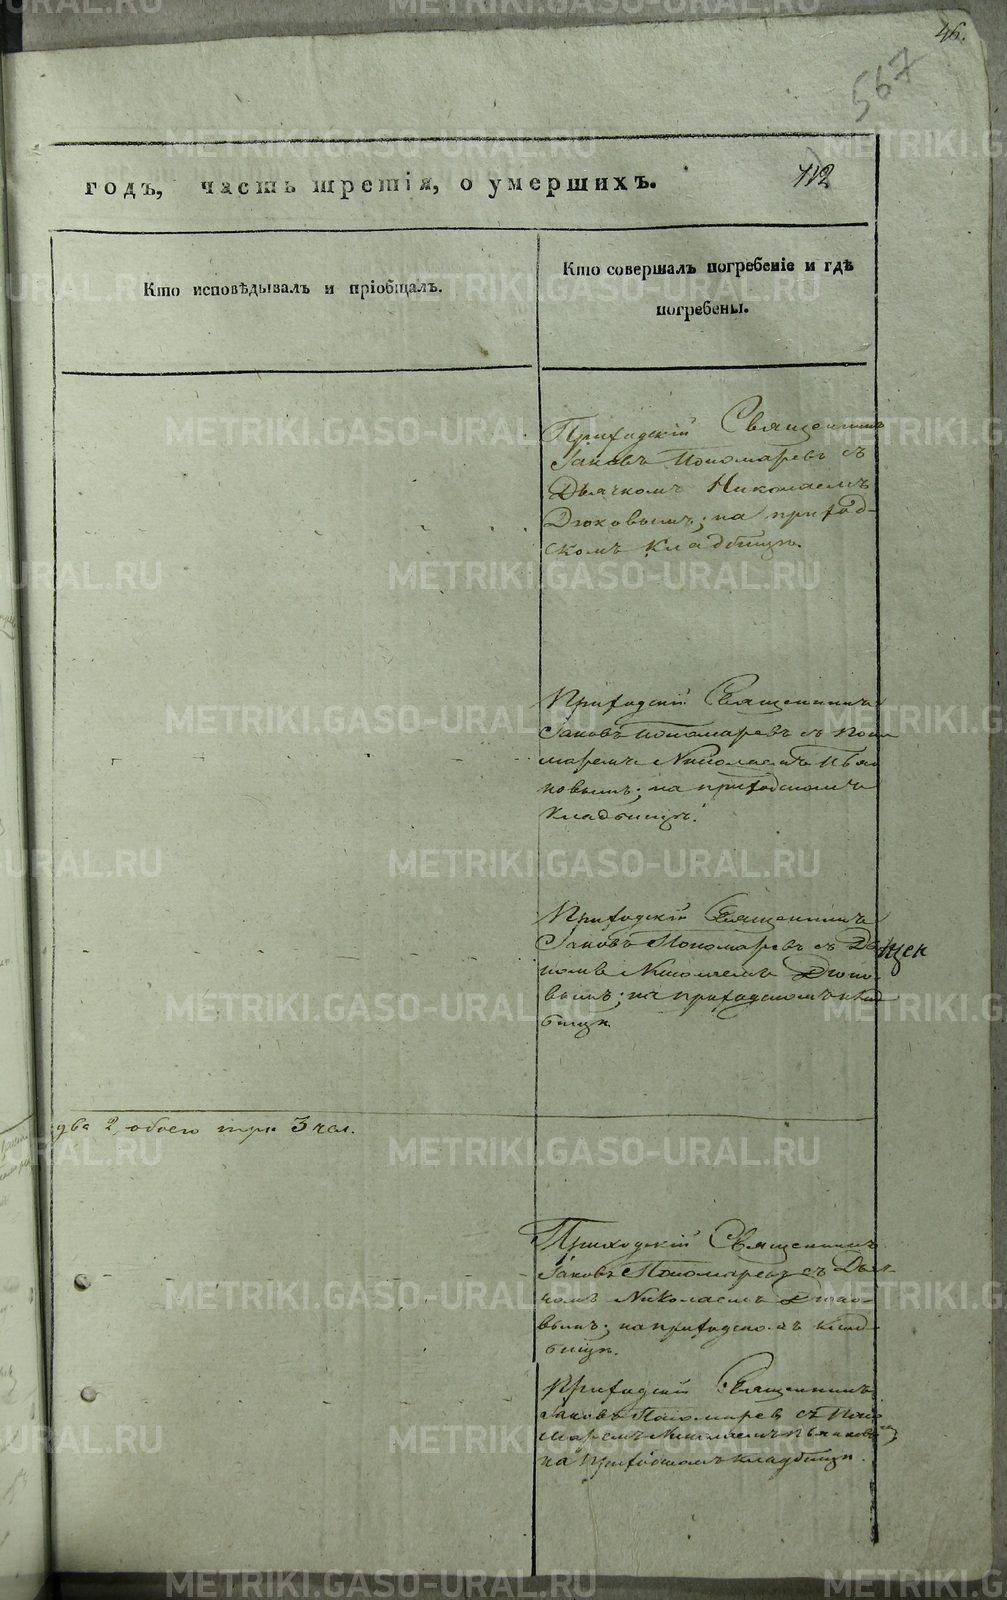 46.
567
годъ, часть третія, о умершихъ.
112
Кто исповѣдывалъ и пріобщалъ.
Кто совершалъ погребеніе и гдѣ
погребены.
Приходскій Священникъ
Іаковъ Пономаревъ съ
Дьячкомъ Николаемъ
Дюковымъ; на приход-
скомъ кладбищѣ.
Приходскій Священникъ
Іаковъ Пономаревъ съ Поно
маремъ Николаемъ Пьян
ковымъ; на приходскомъ
кладбищѣ.
Приходскій Священникъ
Іаковъ Пономаревъ съ Дья
комъ Николаемъ Дюко-
вымъ; на приходскомъ клад
бищѣ.
два 2, обоего три 3 чел.
Приходскій Священникъ
Іаковъ Пономаревъ съ Дьяч
комъ Николаемъ Дюко-
вымъ; на приходскомъ клад-
бищѣ.
Приходскій Священникъ
Іаковъ Пономаревъ съ Поно
маремъ Николаемъ Пьянковымъ
на приходскомъ кладбищѣ.
METRIKI.GASO-URAL.RU